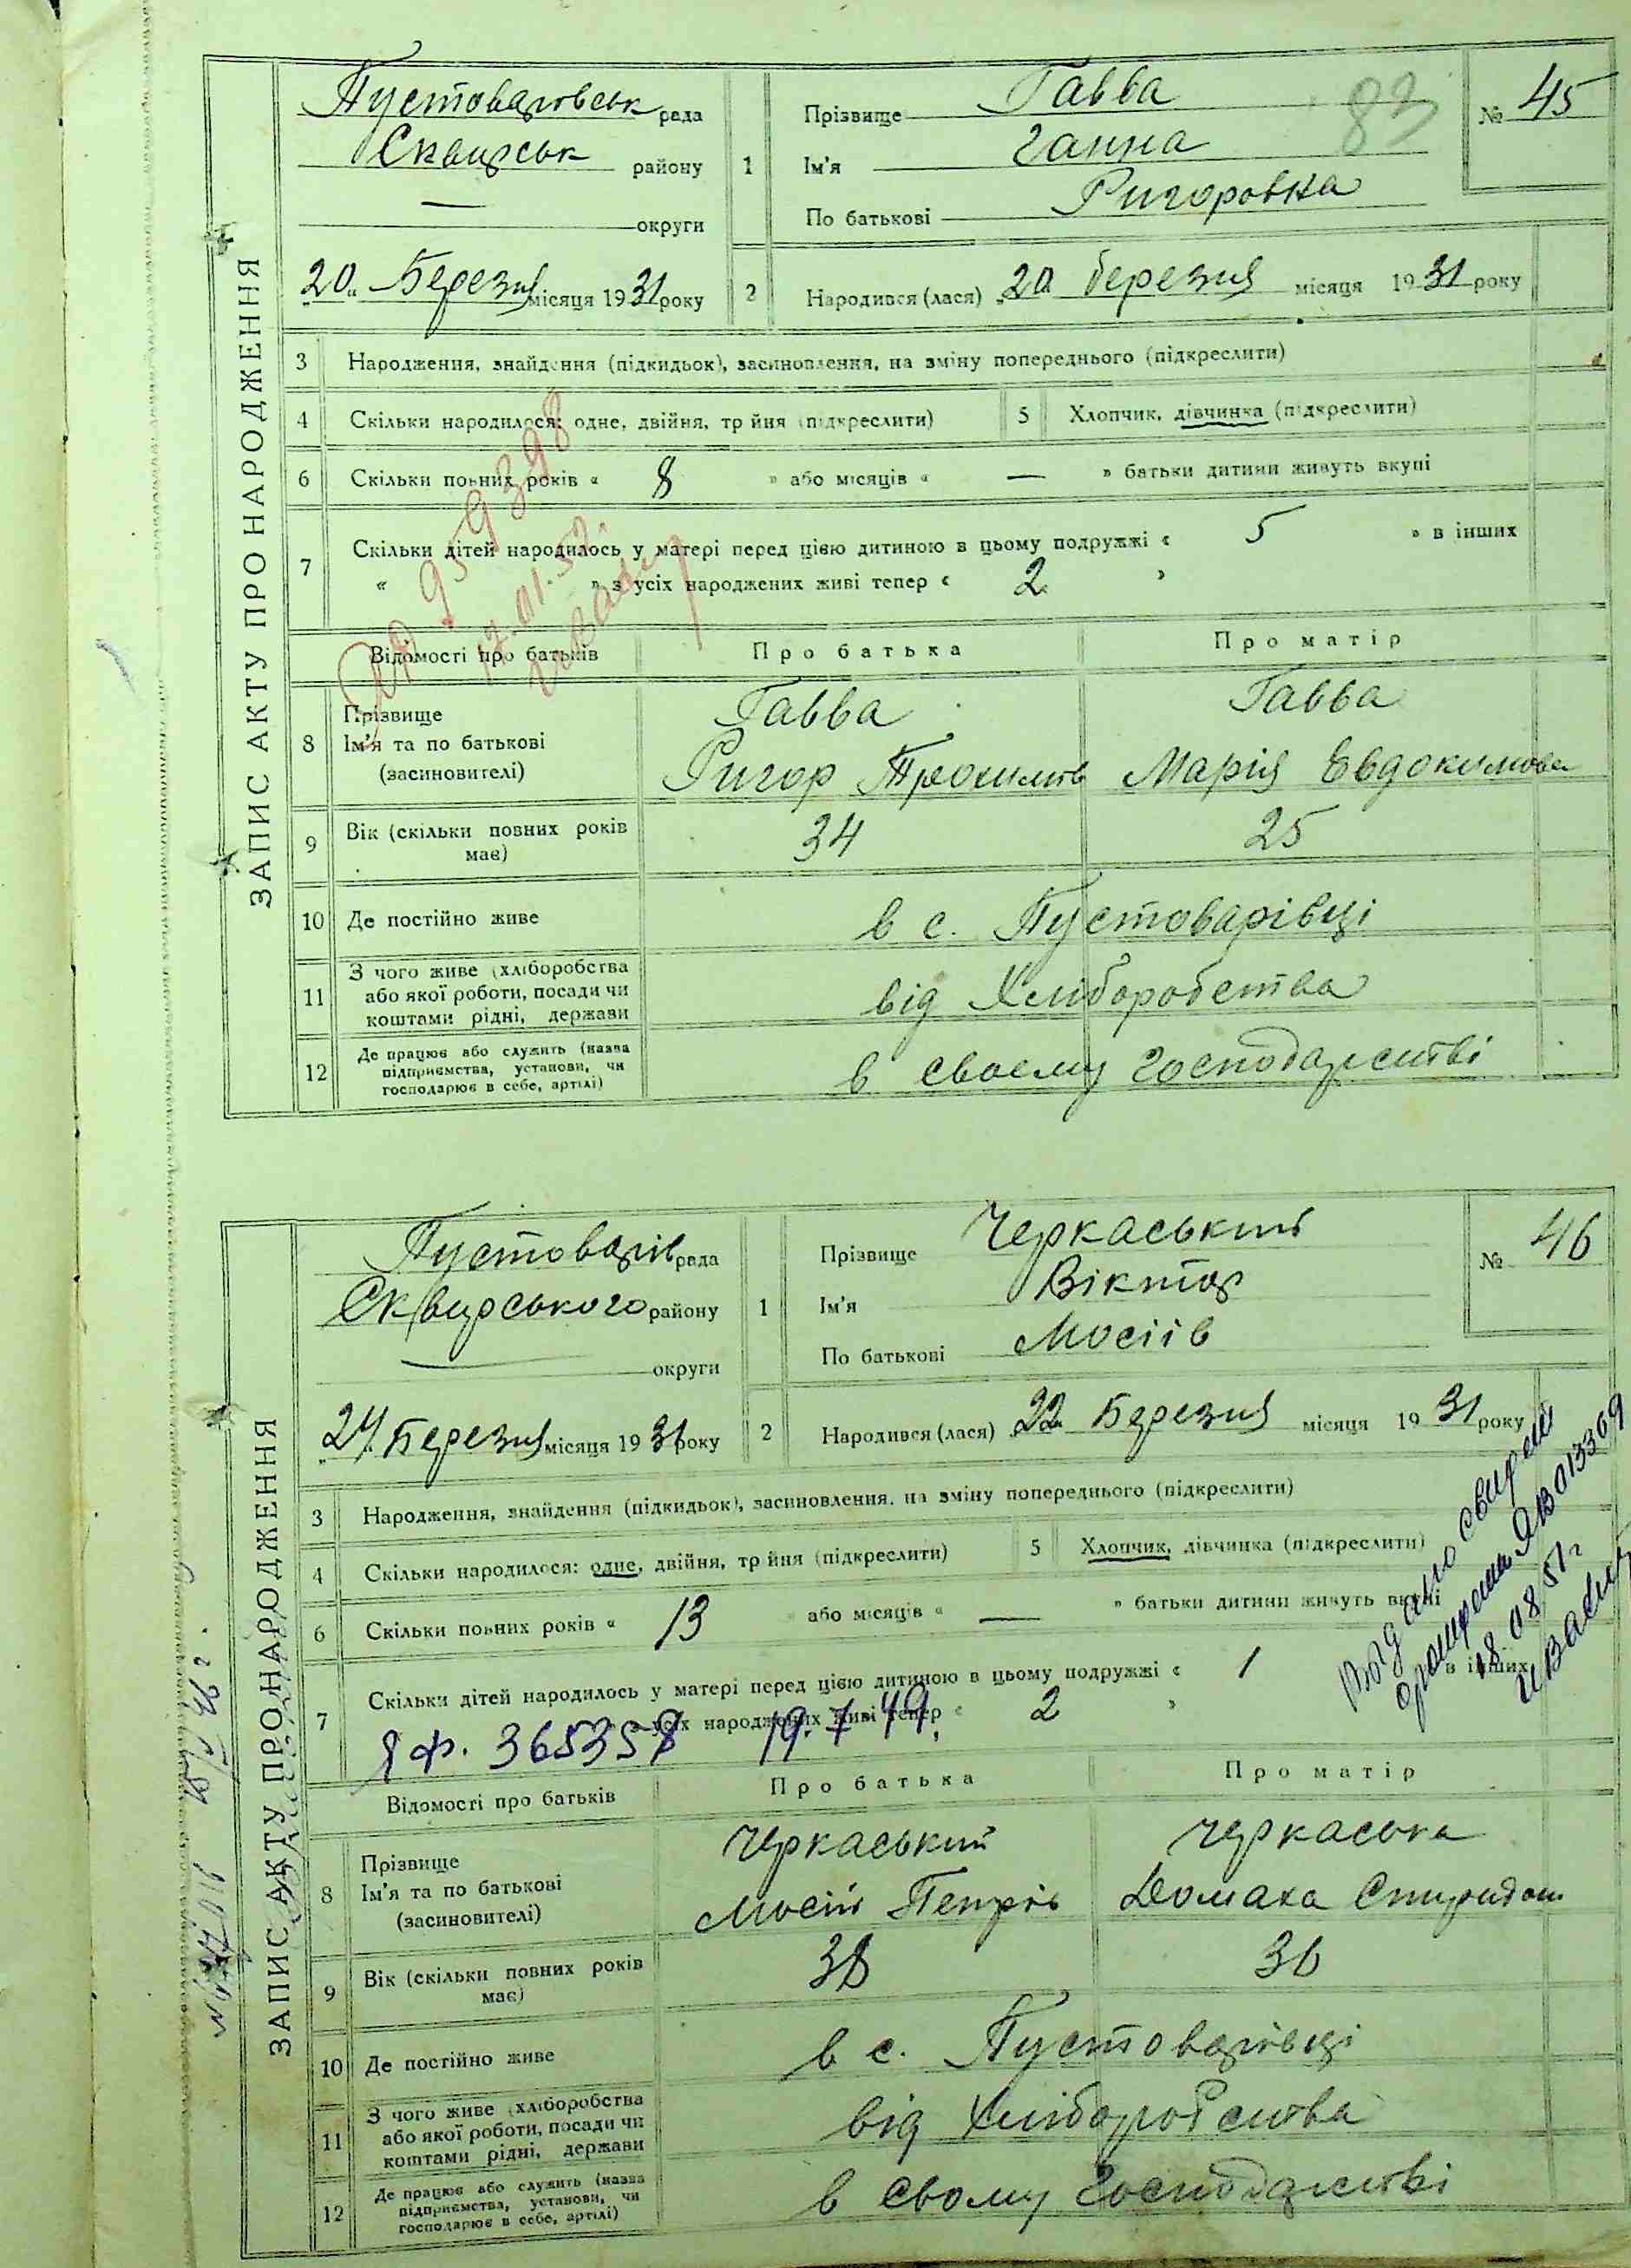 ЗАПИС АКТУ ПРО НАРОДЖЕННЯ
Пустоварівськ рада
Сквирськ району
— округи
„20“ Березня місяця 1931 року
1 Прізвище Гавва
Ім'я Ганна
По батькові Ригоровна
83
№ 45
2 Народився (лася) „20“ березня місяця 1931 року
3 Народження, знайдення (підкидьок), засиновлення, на зміну попереднього (підкреслити)
4 Скільки народилося: одне, двійня, трійня (підкреслити)
5 Хлопчик, дівчинка (підкреслити)
6 Скільки повних років « 8 » або місяців « — » батьки дитини живуть вкупі
7 Скільки дітей народилось у матері перед цією дитиною в цьому подружжі « 5 » в інших
« » з усіх народжених живі тепер « 2 »
959398
17.01.52.
Відомості про батьків
Про батька
Про матір
8 Прізвище
Ім'я та по батькові
(засиновителі)
Гавва
Ригор Трохимів
Гавва
Марія Евдокимова
9 Вік (скільки повних років має)
34
25
10 Де постійно живе
в с. Пустоварівці
11 З чого живе (хліборобства
або якої роботи, посади чи
коштами рідні, держави
від Хліборобства
12 Де працює або служить (назва
підприємства, установи, чи
господарює в себе, артілі)
в своєму господарстві
ЗАПИС АКТУ ПРО НАРОДЖЕННЯ
Пустоварів рада
Сквирського району
— округи
„24“ Березня місяця 1931 року
1 Прізвище Черкаський
Ім'я Віктор
По батькові Мосіів
№ 46
2 Народився (лася) 22 Березня місяця 1931 року
3 Народження, знайдення (підкидьок), засиновлення, на зміну попереднього (підкреслити)
4 Скільки народилося: одне, двійня, трійня (підкреслити)
5 Хлопчик, дівчинка (підкреслити)
6 Скільки повних років « 13 » або місяців « — » батьки дитини живуть вкупі
7 Скільки дітей народилось у матері перед цією дитиною в цьому подружжі « 1 » в інших
з усіх народжених живі тепер « 2 »
ЯФ. 365358 19.7.49.
ЯВ 013369
18.08 51 г
Відомості про батьків
Про батька
Про матір
8 Прізвище
Ім'я та по батькові
(засиновителі)
Черкаський
Мосій Петрів
Черкаська
Домаха Спиридон
9 Вік (скільки повних років має)
38
36
10 Де постійно живе
в с. Пустоварівці
11 З чого живе (хліборобства
або якої роботи, посади чи
коштами рідні, держави
від Хліборобства
12 Де працює або служить (назва
підприємства, установи, чи
господарює в себе, артілі)
в свому господарстві